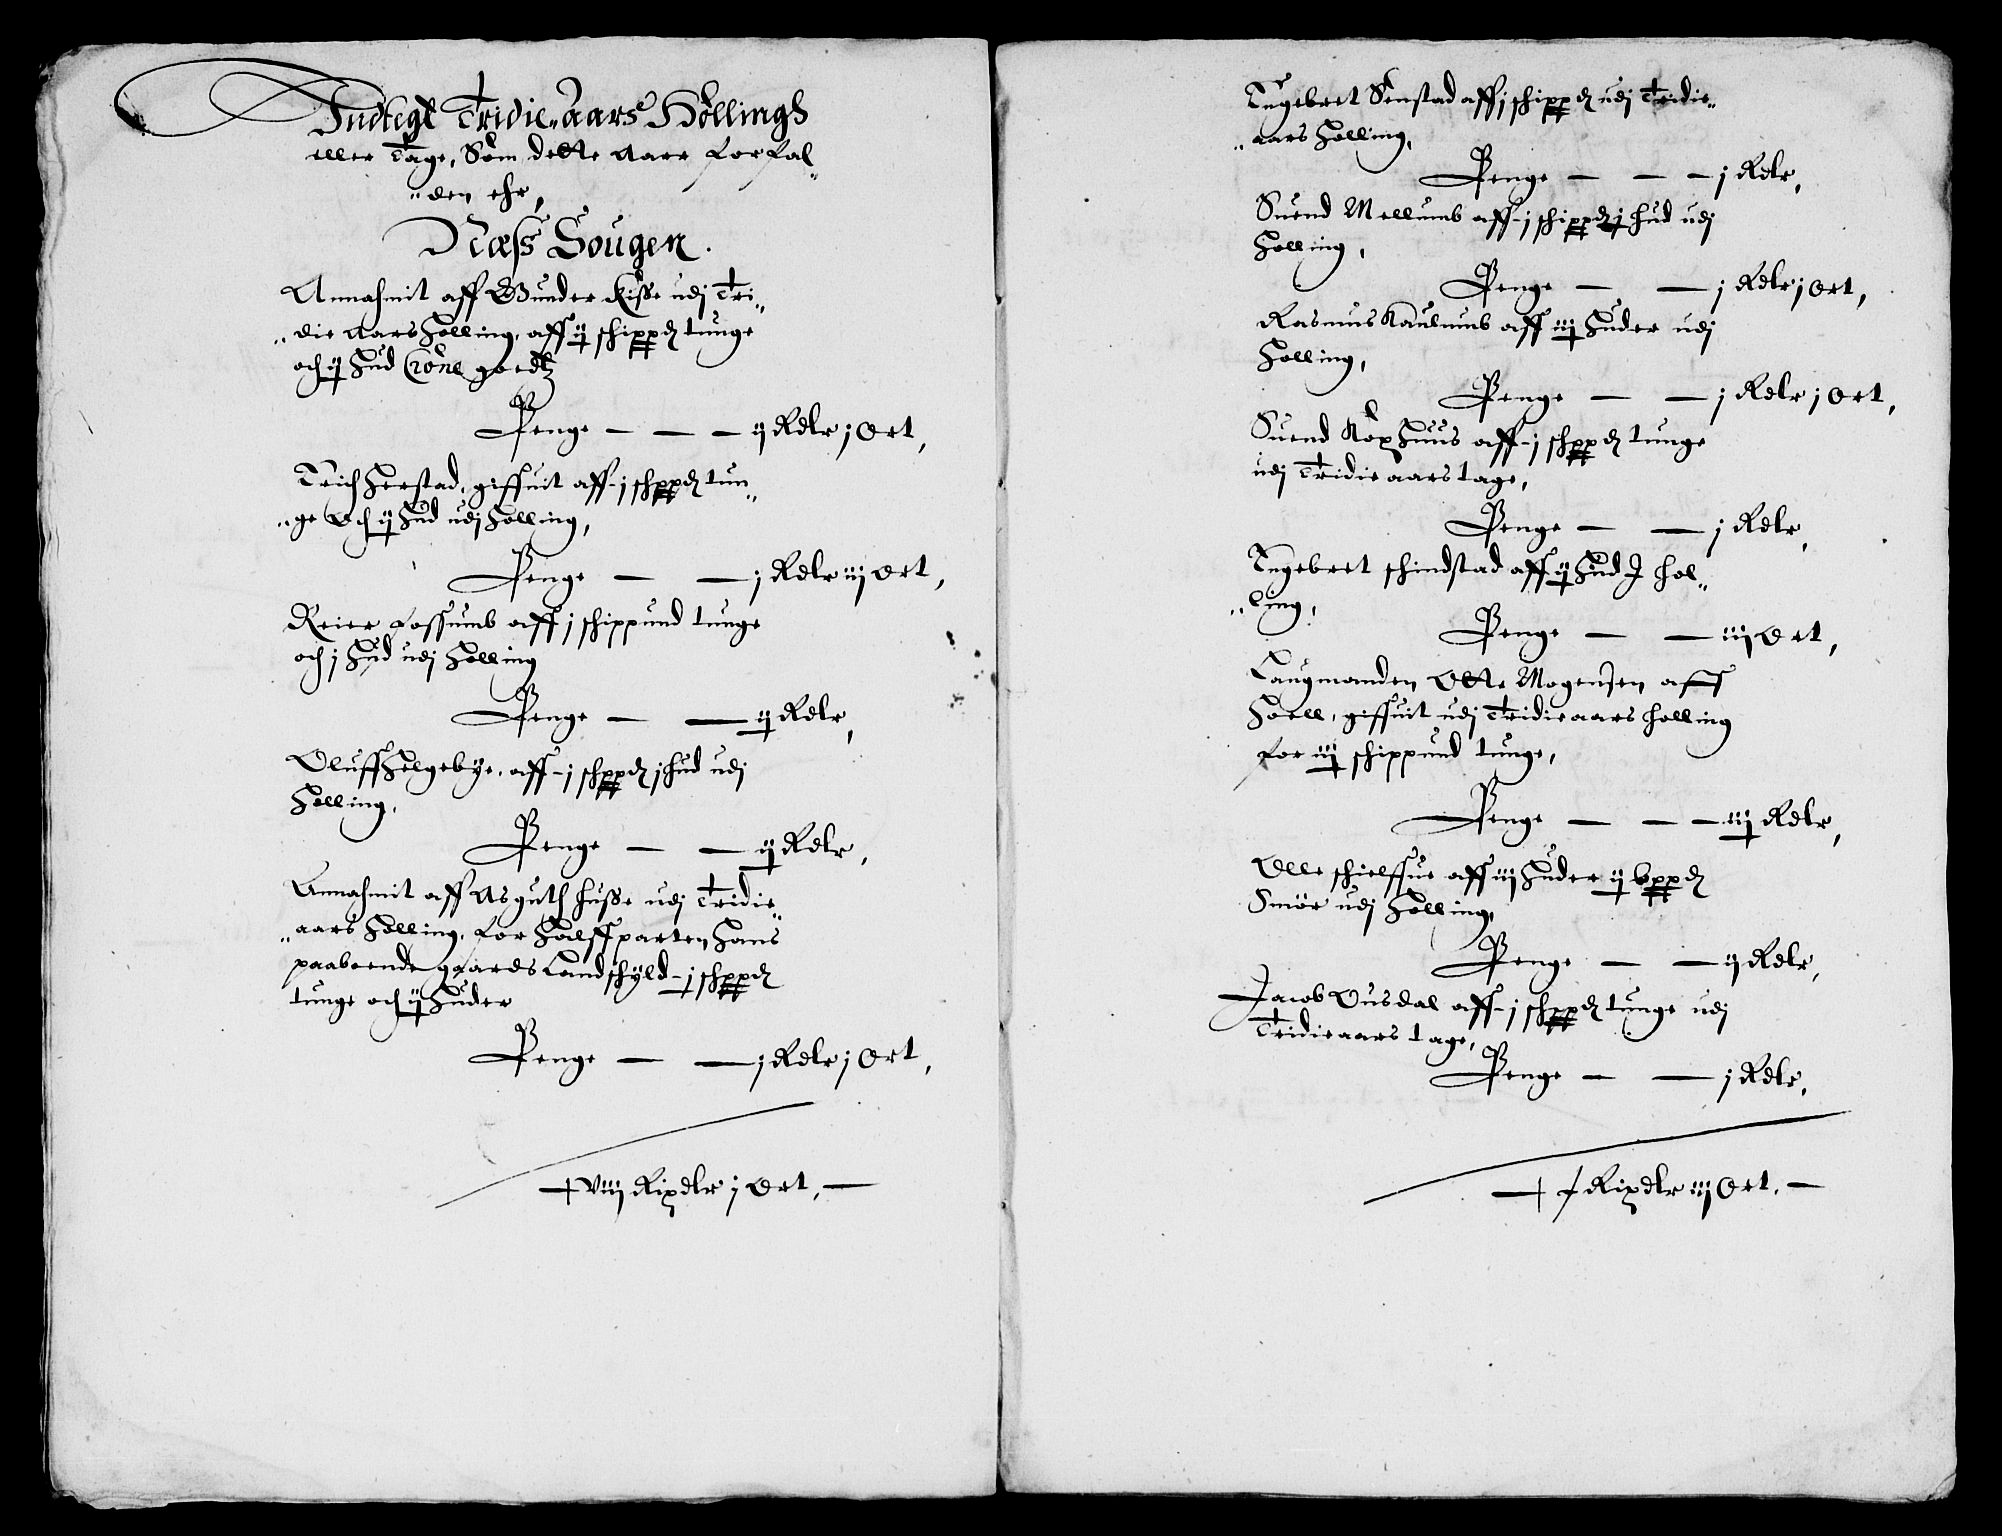 Indtegt Tridie aars Hollingh
eller Tage, Som dette Aar forfal„
„den ehr,
Næss Sougen.
Annahmit aff Gunder Kisse udj Tri„
„die aars Holling, aff ij schippd tunge
och ij Hud Crone goedtz
Penge — — — ij Rdlr j Ort,
Erich Herstad, giffuit aff - j schppd tun„
„ge Och ij Hud udj Holling,
Penge — — j Rdlr iij Ort,
Reier Fossumb aff j schippund tunge
och j Hud udj Holling
Penge — — ij Rdlr,
Oluff Helgebye, aff - j schppd j Hud udj
Holling,
Penge — — ij Rdlr,
Annahmit aff Asguth Husse udj Tridie„
„aars Holling, for Halffparten Hans
paaboende gaards Landschyld - j schppd
tunge och ij Huder
Penge — — j Rdlr j Ort,
viij Rixdlr j Ort, —
Engebret Senstad aff j schippd udj Tridie„
„aars Holling,
Penge — — — j Rdlr,
Suend Mellumb aff - j schippd j Hud udj
Holling,
Penge — — j Rdlr j Ort,
Rasmus Kaulumb aff iij Huder udj
Holling,
Penge — — j Rdlr j Ort,
Suend KopHuus aff - j schppd tunge
udj Tridie aars tage,
Penge — — j Rdlr,
Engebret schindstad aff ij Hud I Hol„
„ling,
Penge — — iij Ort,
Laugmanden Otte Mogensen aff
Hoell, giffuit udj Tridie aars Holling
for iij schippund tunge,
Penge — — — iij Rdlr,
Olle schielffue aff iij Huder ij bppd
Smör udj Holling,
Penge — — ij Rdlr,
Jacob Ousdal aff - j schppd tunge udj
Tridie aars tage,
Penge — — j Rdlr,
Rixdlr iij Ort, —